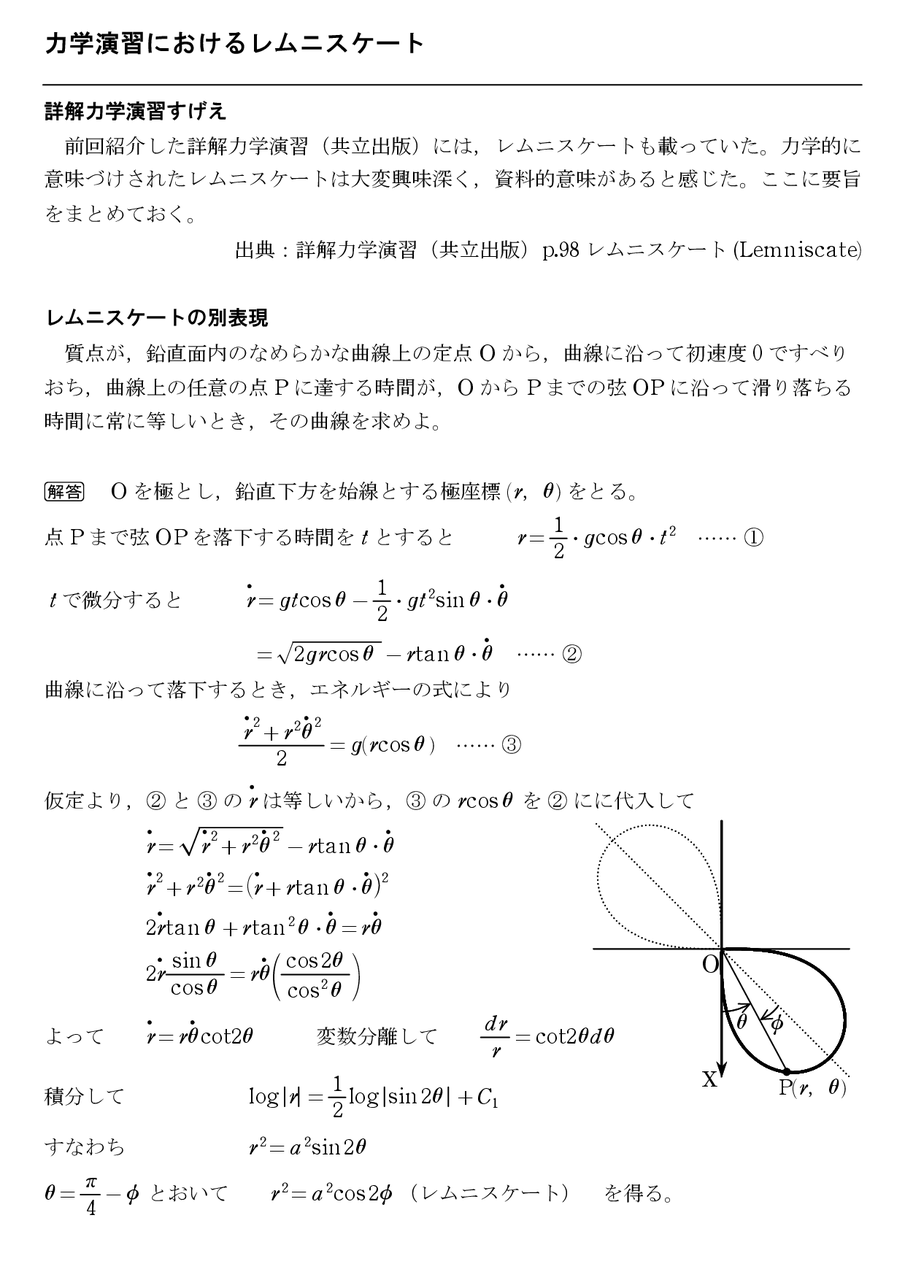 力学演習におけるレムニスケート
詳解力学演習すげえ
　前回紹介した詳解力学演習（共立出版）には，レムニスケートも載っていた。力学的に
意味づけされたレムニスケートは大変興味深く，資料的意味があると感じた。ここに要旨
をまとめておく。
出典：詳解力学演習（共立出版）p.98 レムニスケート (Lemniscate)
レムニスケートの別表現
　質点が，鉛直面内のなめらかな曲線上の定点 O から，曲線に沿って初速度 0 ですべり
おち，曲線上の任意の点 P に達する時間が，O から P までの弦 OP に沿って滑り落ちる
時間に常に等しいとき，その曲線を求めよ。
解答　O を極とし，鉛直下方を始線とする極座標 (r, θ) をとる。
点 P まで弦 OP を落下する時間を t とすると　r = 1/2・gcosθ・t² …… ①
t で微分すると　ṙ = gtcosθ − 1/2・gt²sinθ・θ̇
= √(2grcosθ) − rtanθ・θ̇ …… ②
曲線に沿って落下するとき，エネルギーの式により
(ṙ² + r²θ̇²)/2 = g(rcosθ) …… ③
仮定より，② と ③ の ṙ は等しいから，③ の rcosθ を ② にに代入して
ṙ = √(ṙ² + r²θ̇²) − rtanθ・θ̇
ṙ² + r²θ̇² = (ṙ + rtanθ・θ̇)²
2ṙtanθ + rtan²θ・θ̇ = rθ̇
2ṙ sinθ/cosθ = rθ̇(cos2θ/cos²θ)
よって　ṙ = rθ̇cot2θ　変数分離して　dr/r = cot2θdθ
積分して　log|r| = 1/2 log|sin2θ| + C₁
すなわち　r² = a²sin2θ
θ = π/4 − φ とおいて　r² = a²cos2φ （レムニスケート）　を得る。
O
θ
φ
X
P(r, θ)